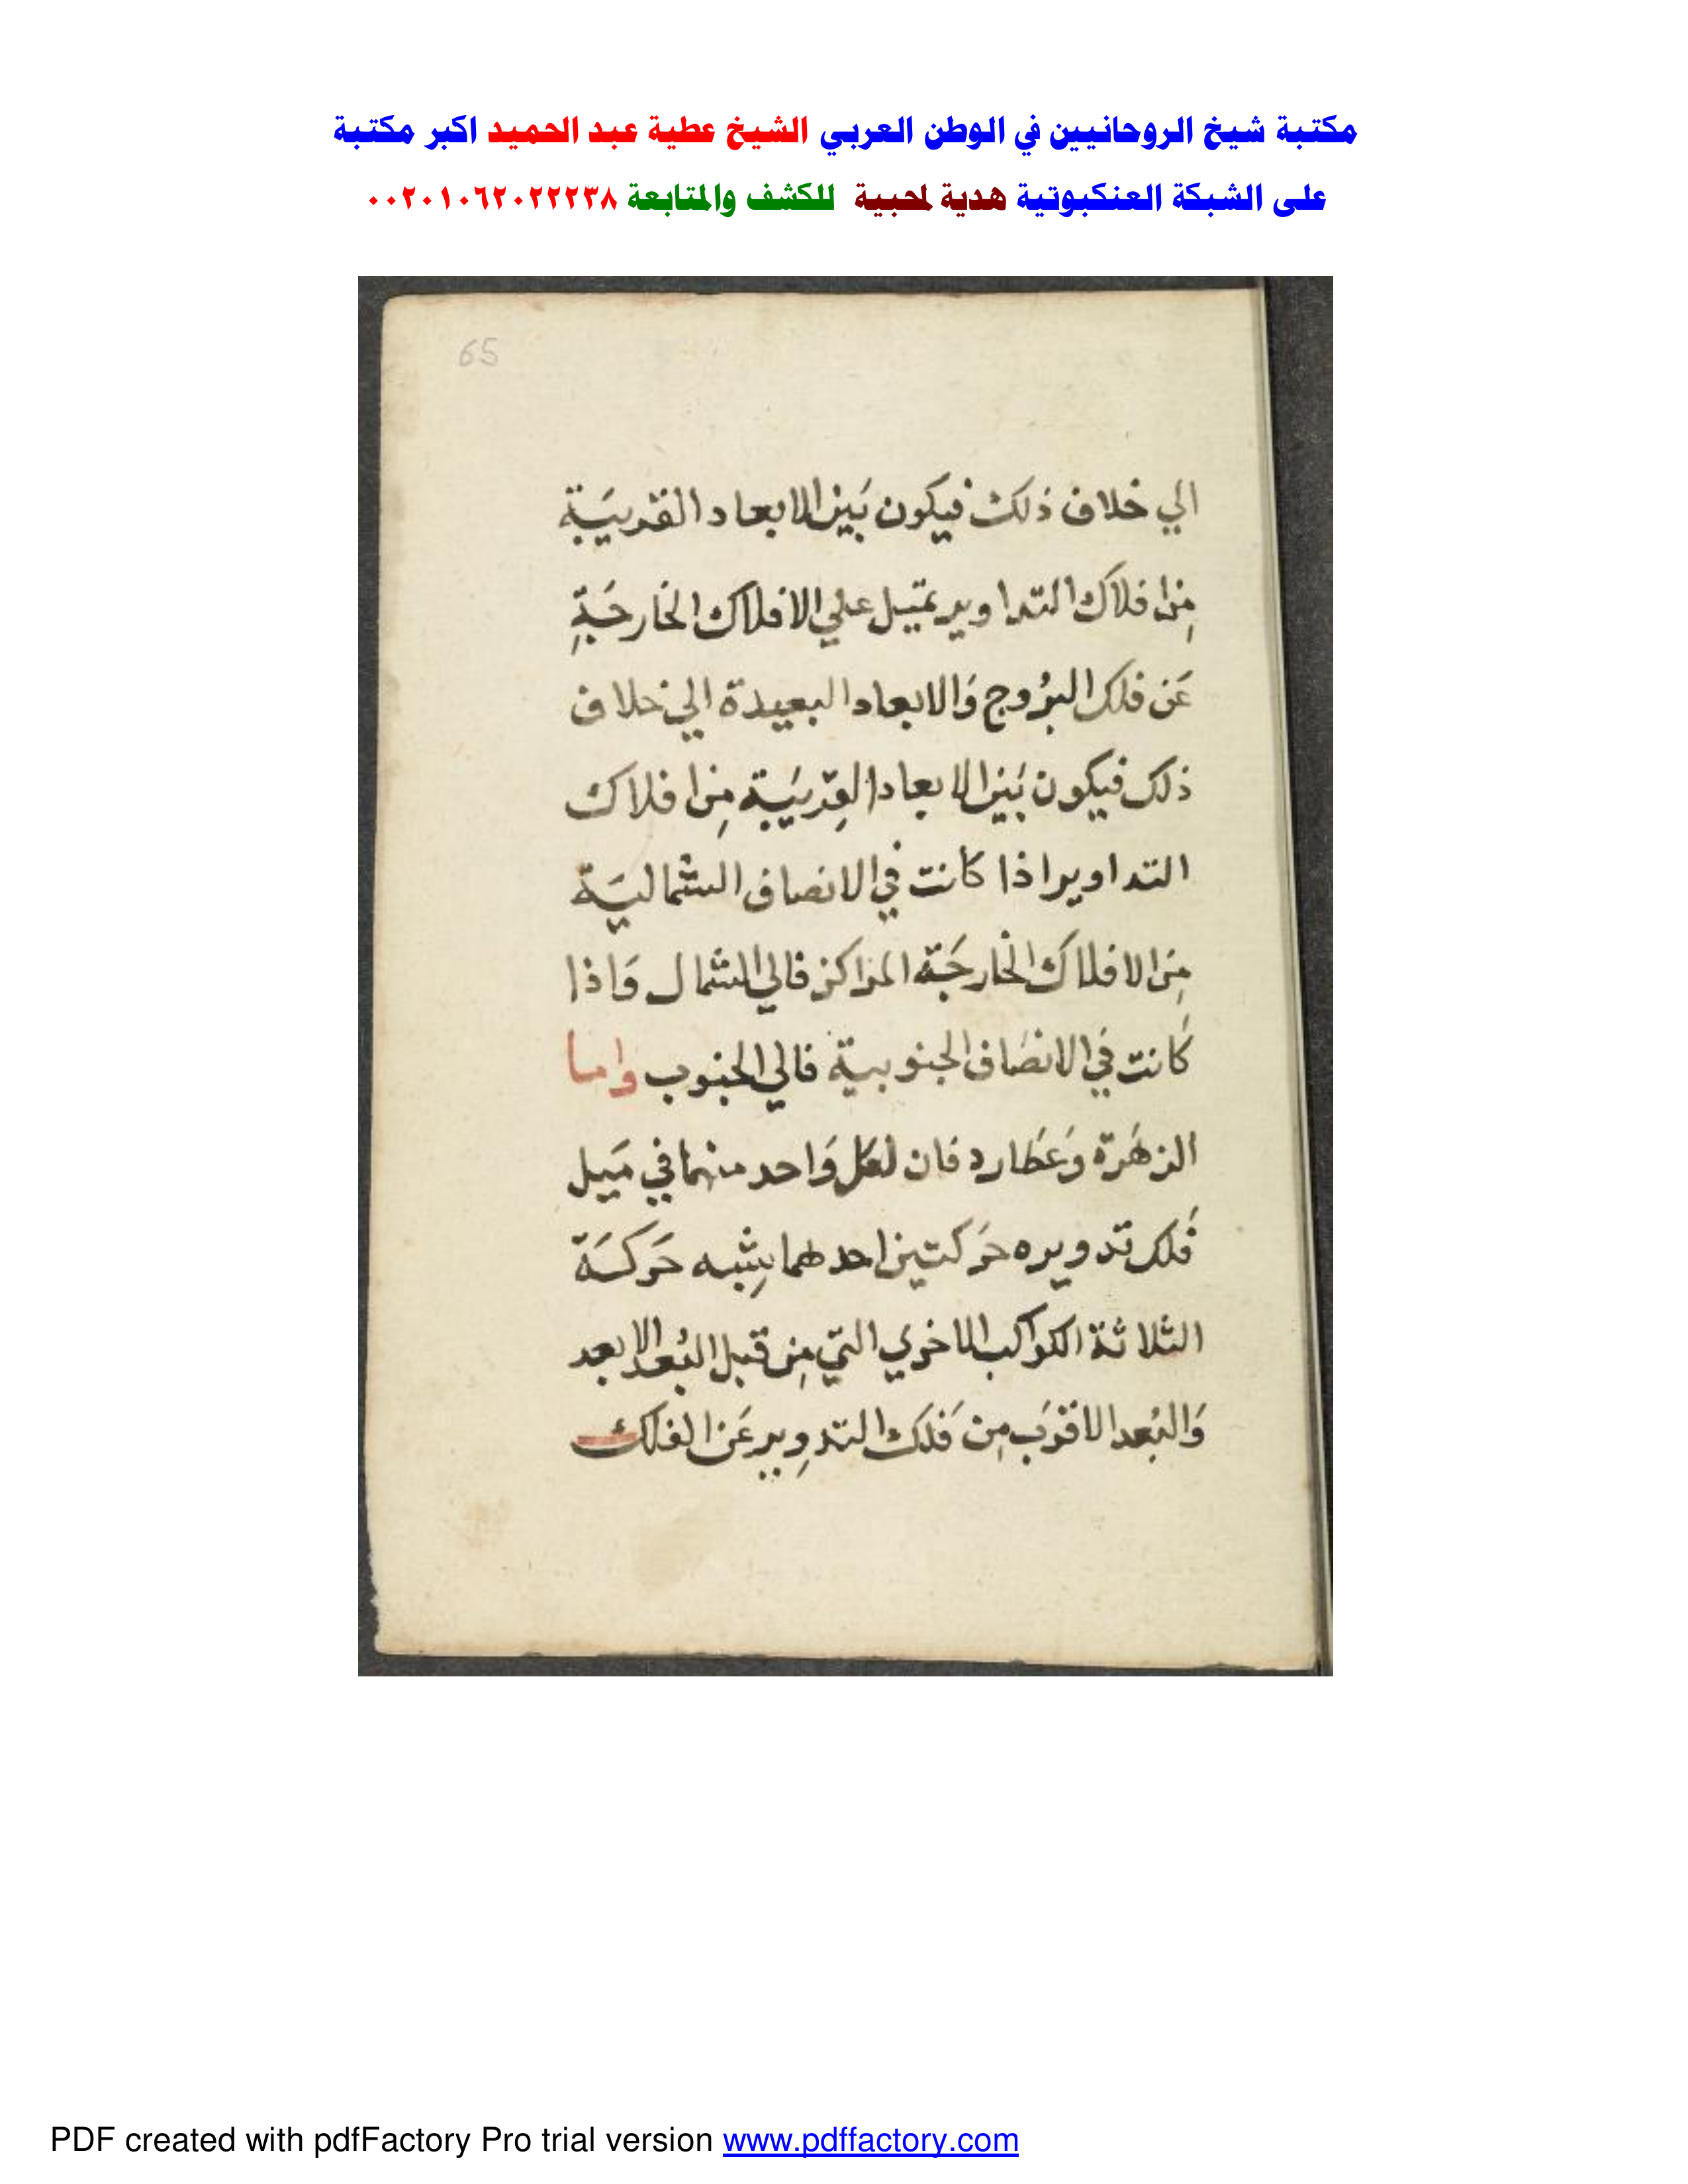 مكتبة شيخ الروحانيين في الوطن العربي الشيخ عطية عبد الحميد اكبر مكتبة
على الشبكة العنكبوتية هدية لمحبية للكشف والمتابعة ٠٠٢٠١٠٦٢٠٢٢٢٣٨
65
الي خلاف ذلك فيكون بَين الابعاد القريبَة
مِن افلاك التداوير تميل علي الافلاك الخارجَةِ
عَن فلك البرُوج وَالابعاد البعيدة الي خلاف
ذلك فيكون بَين الابعاد القِريبَة مِن افلاك
التداوير اذا كانت في الانصاف الشماليَة
مِن الافلاك الخارجَة المراكز فالي الشمال وَاذا
كَانت في الانصَاف الجنوبية فالي الجنوب واما
الزهَرة وَعَطارد فان لكل وَاحد منهما في مَيل
فَلك تدويره حَركتين احدهما يشبه حَركَة
الثلاثة الكواكب الاخري التي مِن قبل البُعد الابعد
وَالبُعد الاقرَب مِن فَلك التدوِير عَن الفلك
PDF created with pdfFactory Pro trial version www.pdffactory.com